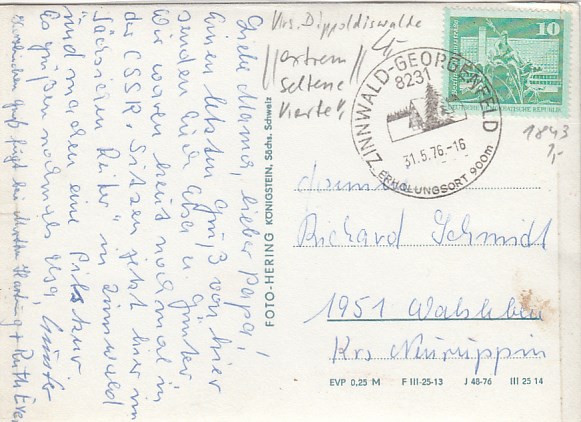 Liebe Mama, lieber Papa!
Einen letzten Gruß von hier
senden Euch Elsa u. Günter
Wir waren heut nochmal in
der CSSR. Sitzen jetzt hier im
"Sächsischen Reiter" in Zinnwald
und machen eine
Es grüßen nochmals Elsa, Günter
Gruß
FOTO-HERING KÖNIGSTEIN, Sächs. Schweiz
Krs. Dippoldiswalde
extrem
seltene
Karte"
10
DEUTSCHE DEMOKRATISCHE REPUBLIK
ZINNWALD-GEORGENFELD
8231
31.5.76.-16
ERHOLUNGSORT 900m
1843
1,-
Familie
Richard Schmidt
1951 Walsleben
Krs Neuruppin
EVP 0,25 M F III-25-13 J 48-76 III 25 14